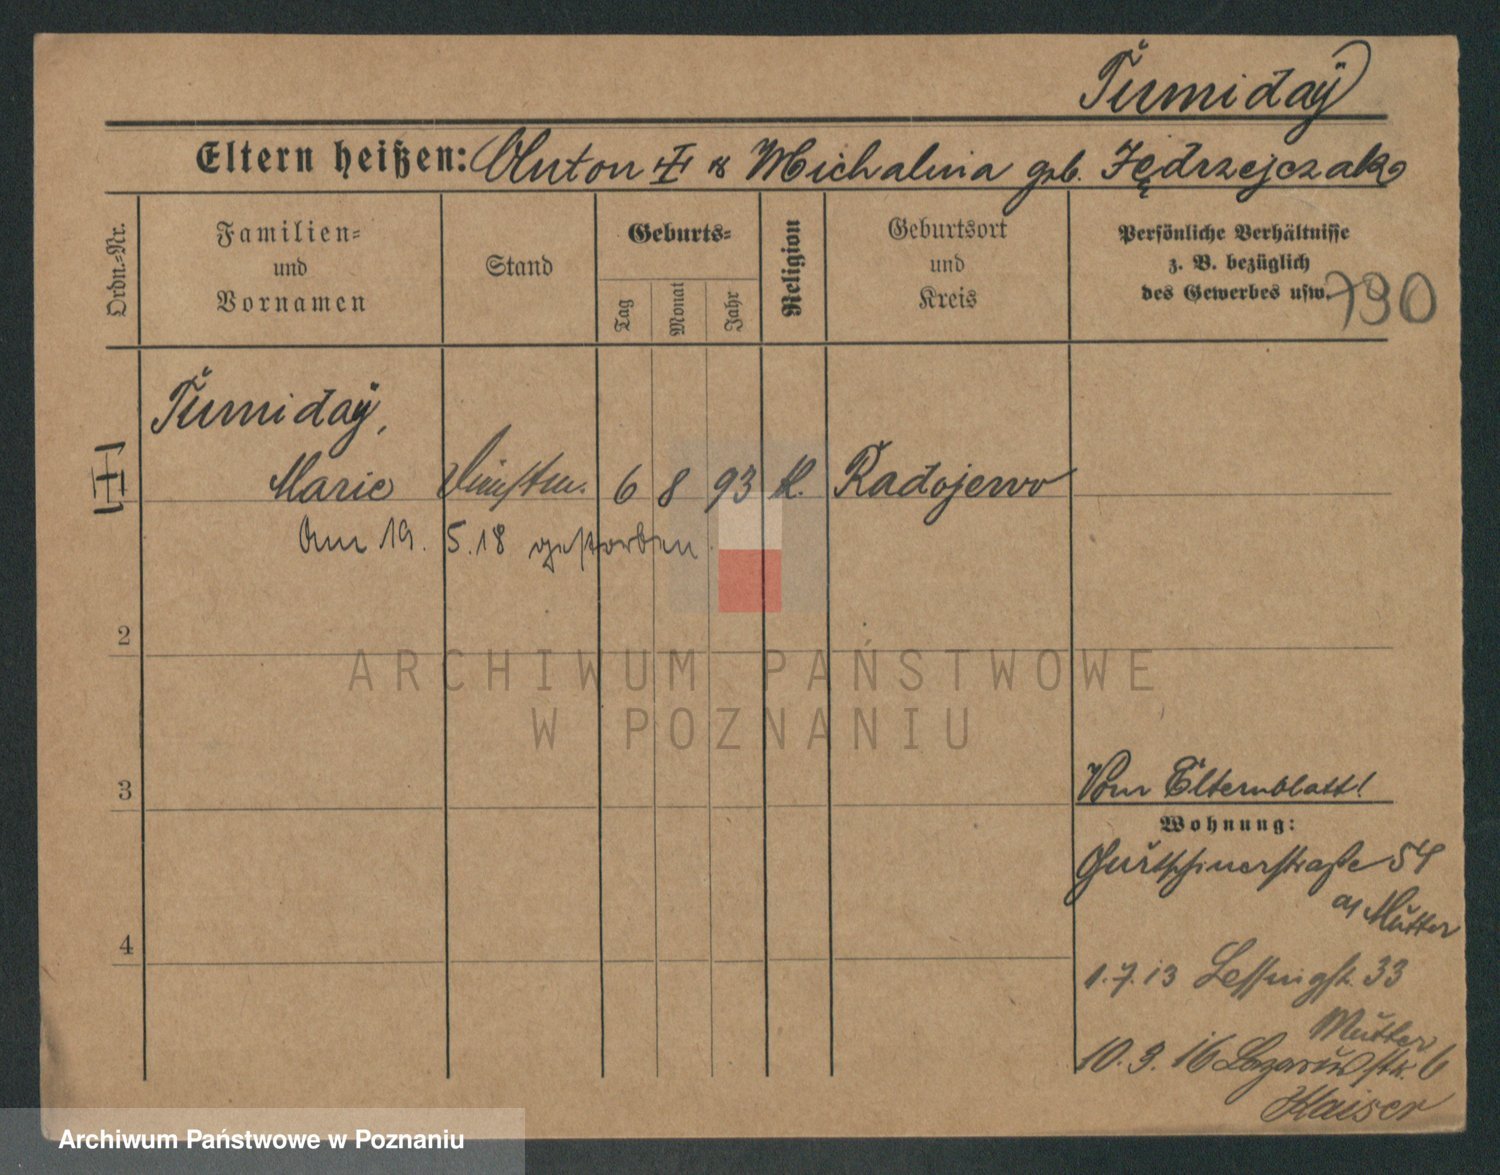 Tumidaÿ
Eltern heißen: Anton & Michalina geb. Jędrzejczak
Ordn.-Nr.
Familien-
und
Vornamen
Stand
Geburts-
Tag
Monat
Jahr
Religion
Geburtsort
und
Kreis
Persönliche Verhältnisse
z. B. bezüglich
des Gewerbes usw.
790
Tumidaÿ,
1 Marie 6 8 93 k. Radojewo
Am 19. 5. 18 gestorben
2
3
4
Vom Elternblatt!
Wohnung:
Gurtschinerstraße 54
Mutter
1.7.13 Lessingstr. 33
Mutter
10.3.16 Lazarusstr. 6
Kaiser
ARCHIWUM PAŃSTWOWE
W POZNANIU
Archiwum Państwowe w Poznaniu